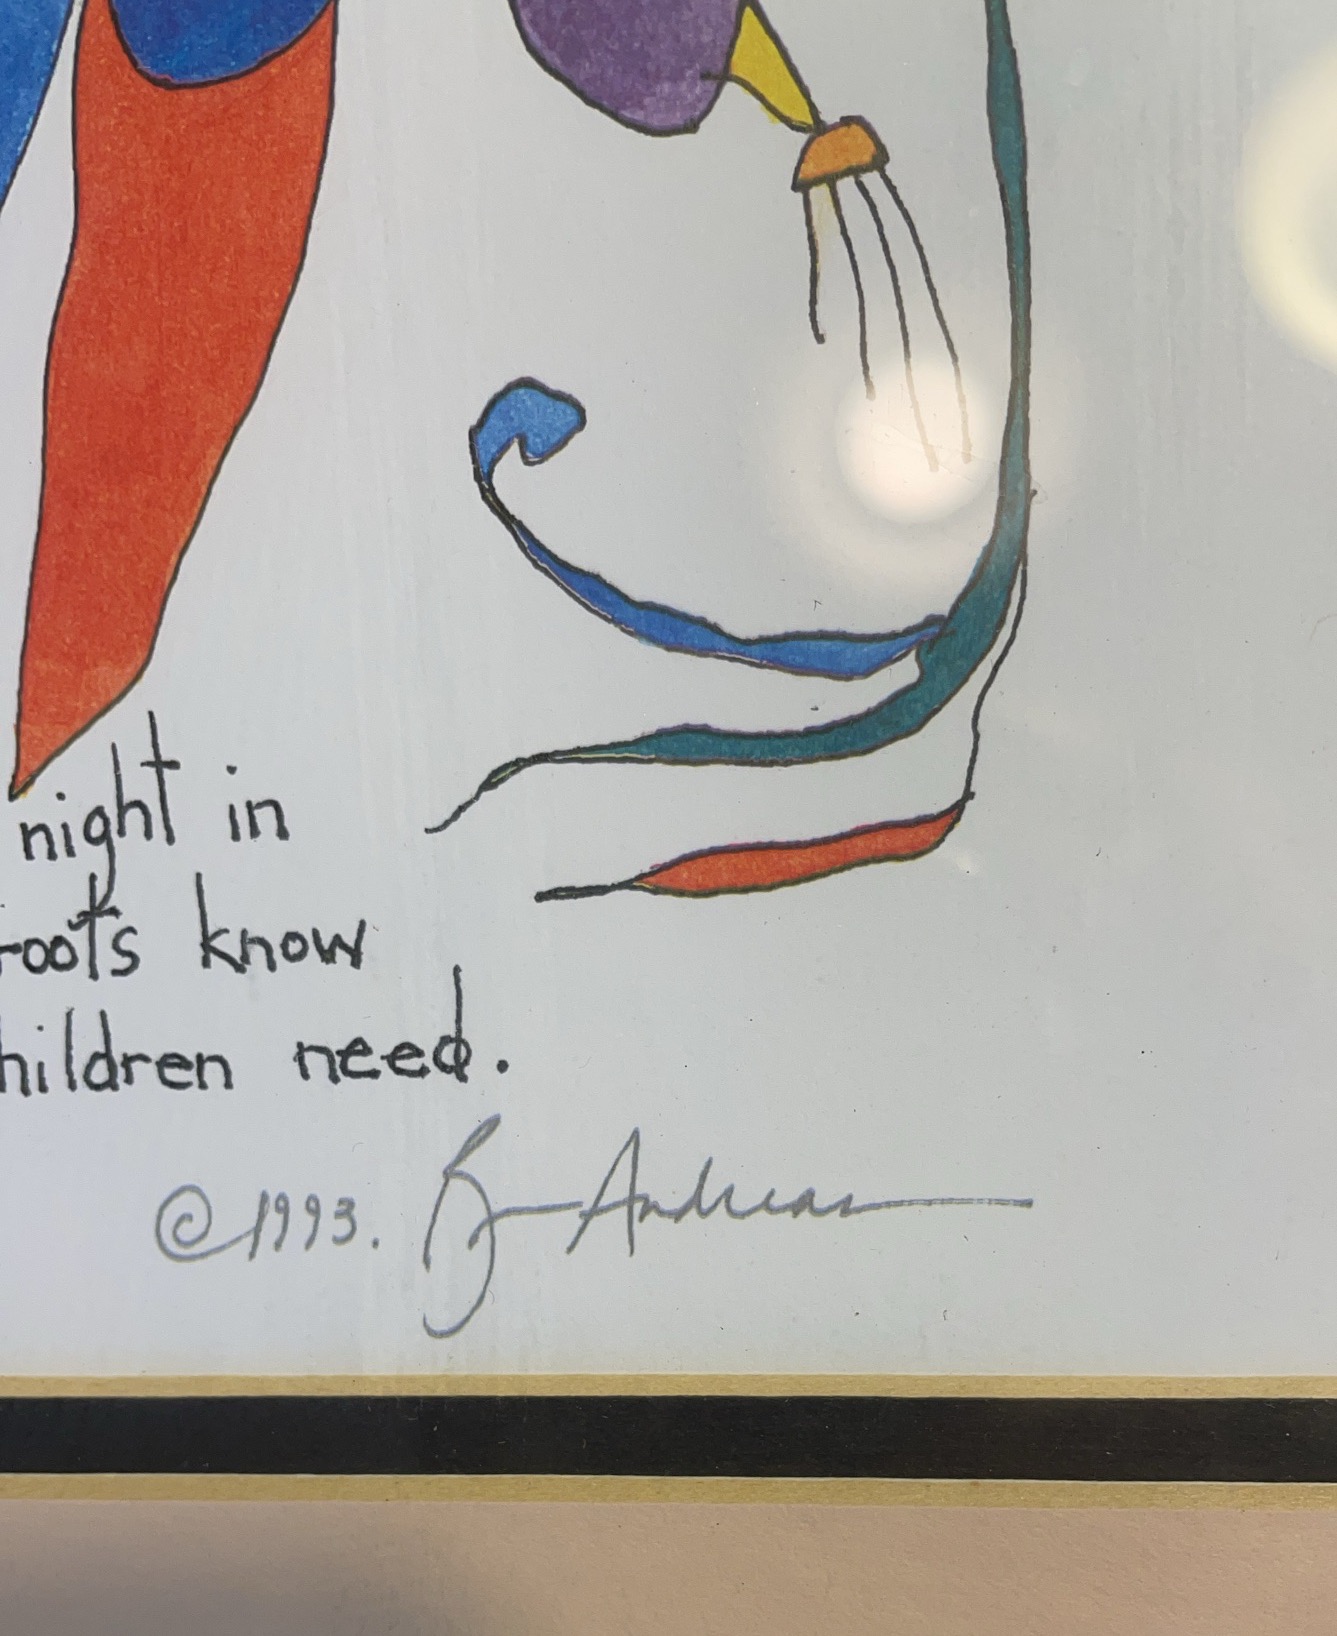 night in
roots know
hildren need.
©1993. B— Andreas